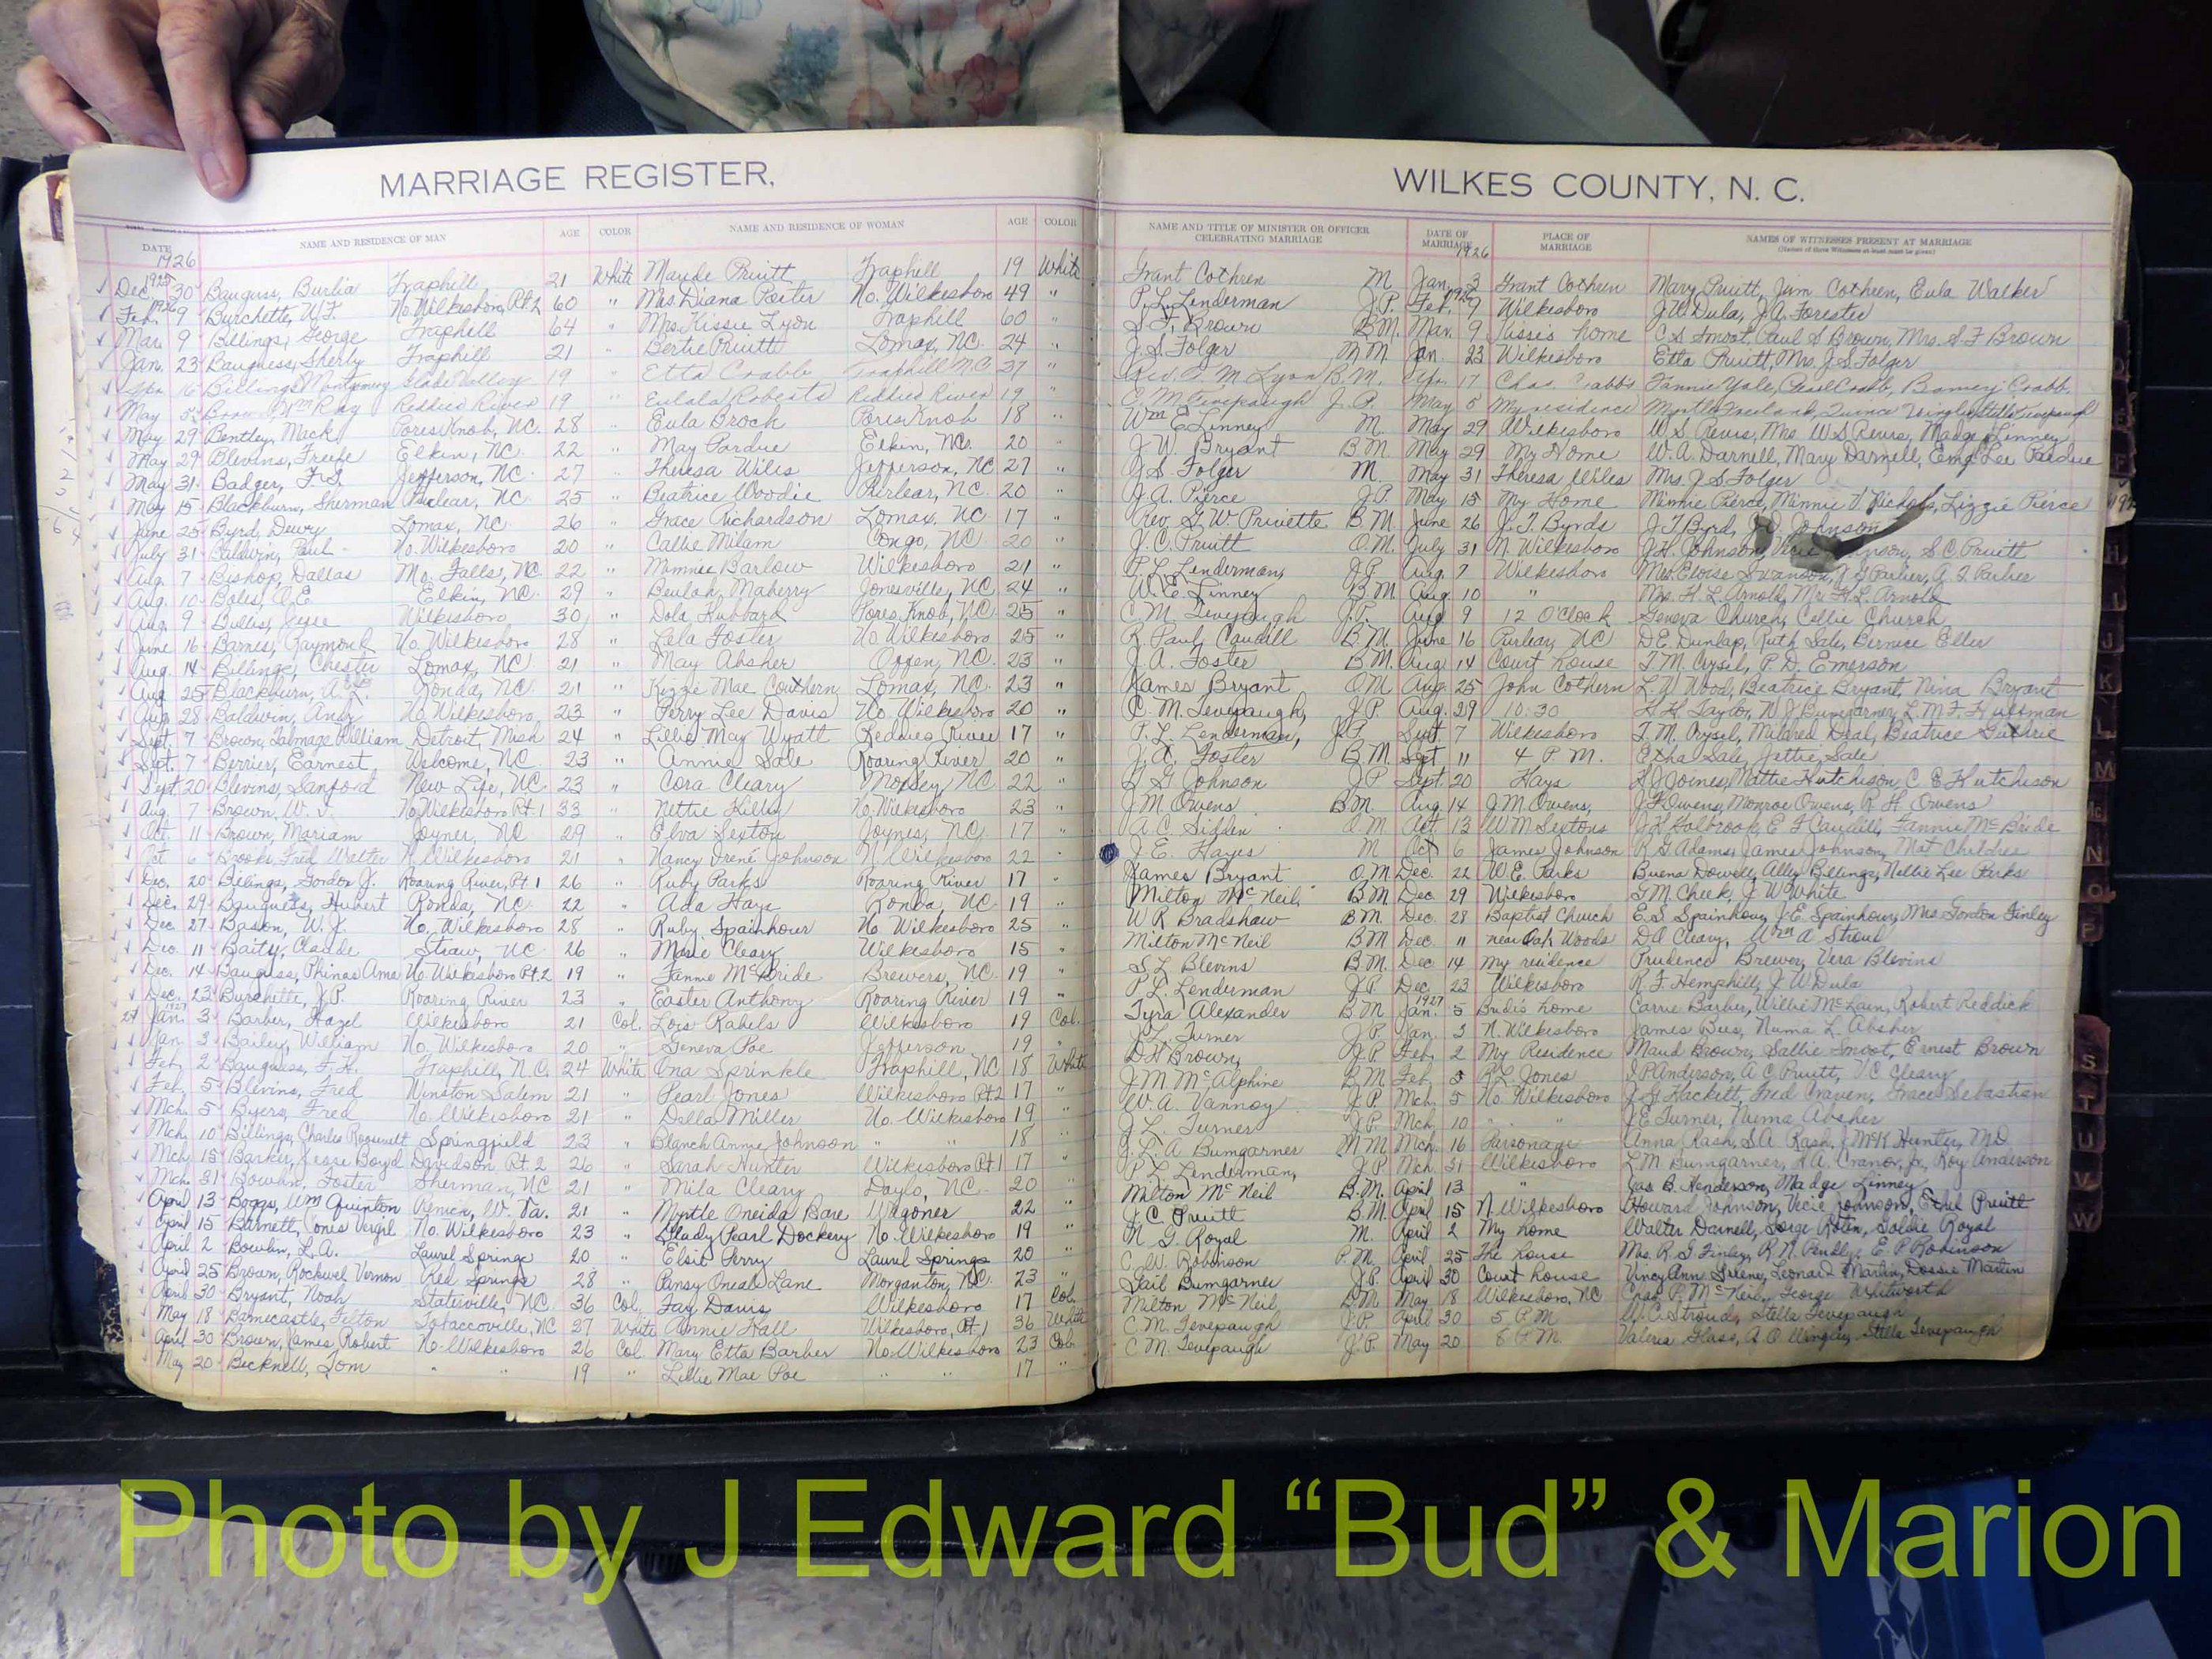 MARRIAGE REGISTER.
WILKES COUNTY, N. C.
DATE NAME AND RESIDENCE OF MAN AGE COLOR NAME AND RESIDENCE OF WOMAN AGE COLOR NAME AND TITLE OF MINISTER OR OFFICER CELEBRATING MARRIAGE DATE OF MARRIAGE PLACE OF MARRIAGE NAMES OF WITNESSES PRESENT AT MARRIAGE
(Names of three Witnesses at least must be given)
1926 1926
Dec. 1925 30 Bauguss, Burlia Traphill 21 White Maude Pruitt Traphill 19 White Grant Cothren M Jan. 3 Grant Cothren Mary Pruitt, Jim Cothren, Eula Walker
Feb. 1926 9 Burchette, W.F. No. Wilkesboro, Rt. 2 60 " Mrs. Diana Porter No. Wilkesboro 49 " P. L. Lenderman J.P. Feb. 9 Wilkesboro J.W. Dula, J.A. Forester
Mar. 9 Billings, George Traphill 64 " Mrs. Kissie Lyon Traphill 60 " S. F. Brown B.M. Mar. 9 home C S Smoot, Paul S Brown, Mrs. S. F Brown
Jan. 23 Bauguess, Sherly Traphill 21 " Bertie Pruitt Lomax, NC. 24 " J. S. Folger M M Jan. 23 Wilkesboro Etta Pruitt, Mrs. J S Folger
16 Billings, Montgomery Glade Valley 19 " Etta Crabb Traphill N.C 27 " Rev. M Lyon B.M. 17 Chas. Crabbs Fannie Yale, Crabb, Barney Crabb.
May 5 Ray Reddies River 19 " Eulala Roberts Reddies River 19 " C M Tevepaugh J. P. May 5 My residence
May 29 Bentley, Mack Pores Knob, NC. 28 " Eula Broch Pores Knob 18 " Wm E Linney M. May 29 Wilkesboro W S Revis, Mrs W S Revis, Madge Linney
May 29 Blevins, Elkin, NC. 22 " May Pardue Elkin, NC. 20 " J. W. Bryant B M. May 29 My Home W. A. Darnell, Mary Darnell, Lee Pardue
May 31 Badger, F.S. Jefferson, NC 27 " Theresa Wiles Jefferson, NC 27 " J. S. Folger M. May 31 Theresa Wiles Mrs. J S Folger
May 15 Blackburn, Sherman Purlear, NC 25 " Beatrice Woodie Purlear, NC. 20 " J. A. Pierce J.P. May 15 My Home Minnie Pierce, Minnie V. Nichols, Lizzie Pierce
June 25 Byrd, Dewy Lomax, NC 26 " Grace Richardson Lomax, NC 17 " Rev. G. W. Privette B.M. June 26 J. T. Byrds J T Byrd, Johnson
July 31 Baldwin, Paul No. Wilkesboro 20 " Callie Milam Congo, NC. 20 " J. C. Pruitt O.M. July 31 N. Wilkesboro J. H. Johnson, S.C. Pruitt
Aug. 7 Bishop, Dallas Mo. Falls, NC 22 " Minnie Barlow Wilkesboro 21 " P. L. Lenderman, J.P. Aug. 7 Wilkesboro Mrs. Eloise Swanson, J G Parlier, A. T. Parlier
Aug. 10 Boles, A.E. Elkin, NC. 29 " Beulah Maberry Jonesville, NC 24 " W. E. Linney B M Aug 10 " Mrs. H. L. Arnold, Mr. H. L. Arnold
Aug. 9 Jesse Wilkesboro 30 " Dola Hubbard Pores Knob, NC. 25 " C. M. Tevepaugh J.P. Aug 9 12 O'Clock Geneva Church, Callie Church
June 16 Barnes, Raymond No. Wilkesboro 28 " Lala Foster No Wilkesboro 25 " R Paul Caudill B M. June 16 Purlear, NC D.E. Dunlap, Ruth Sale, Bernice Eller
Aug. 14 Billings, Chester Lomax, NC. 21 " May Absher Offen, NC. 23 " J. A. Foster B M. Aug 14 Court house T. M. Crysel, P. D. Emerson
Aug 25 Blackburn, A. Ronda, NC. 21 " Kizzie Mae Couthern Lomax, NC. 23 " James Bryant O.M. Aug. 25 John Cothern L. W Wood, Beatrice Bryant, Nina Bryant
Aug 28 Baldwin, Andy No. Wilkesboro 23 " Perry Lee Davis No. Wilkesboro 20 " C. M. Tevepaugh, J.P. Aug. 29 10:30 H. H. Taylor, W J Bumgarner, L. M F. Huffman
Sept. 7 Brown, Talmage William Detroit, Mich 24 " Lillie May Wyatt Reddies River 17 " P. L. Lenderman, J.P. Sept 7 Wilkesboro T. M. Crysel, Mildred Deal, Beatrice Guthrie
Sept. 7 Berrier, Earnest Welcome, NC 23 " Annie Sale Roaring River 20 " J. A. Foster B M. Sept 11 4 P. M. Etha Sale, Jettie Sale
Sept 20 Blevins, Sanford New Life, NC 23 " Cora Cleary Moxley, NC 22 " G Johnson J P Sept. 20 Hays L J Joines, Mattie Hutchison, C E Hutchison
Aug. 7 Brown, W. V. No Wilkesboro Rt 1 33 " Nettie Kilby No. Wilkesboro 23 " J M Owens B M. Aug 14 J. M. Owens, J F Owens, Monroe Owens, R. H. Owens
Oct. 11 Brown, Mariam Joyner, NC 29 " Elva Sexton Joynes, NC. 17 " A. C. Sidden O M Oct 13 W M Sextons J H Holbrook, E F Caudill, Fannie McBride
Oct 6 Brooks, Fred Walter N. Wilkesboro 21 " Nancy Irene Johnson N Wilkesboro 22 " J. E. Hayes M Oct 6 James Johnson R G Adams, James Johnson, Mat Childres
Dec. 20 Billings, Gordon J. Roaring River, Rt 1 26 " Ruby Parks Roaring River 17 " James Bryant O.M. Dec. 22 W. E. Parks Buena Dowell, Ally Billings, Nellie Lee Parks
Dec. 29 Bauguess, Hubert Ronda, NC 22 " Ada Haye Ronda, NC 19 " Milton McNeil, B M Dec 29 Wilkesboro G M. Cheek, J W White
Dec 27 Bason, W. J. No. Wilkesboro 28 " Ruby Spainhour No. Wilkesboro 25 " W R Bradshaw B M. Dec. 28 Baptist Church E. S. Spainhour, J E. Spainhour, Mrs Gordon Finley
Dec 11 Baity, Claude Straw, NC 26 " Marie Cleary Wilkesboro 15 " Milton McNeil B M Dec. 11 near Oak Woods D C Cleary, Wm A Stroud
Dec. 14 Bauguss, Phinas Ama No. Wilkesboro Rt 2 19 " Fannie McBride Brewers, NC. 19 " S L Blevins B.M. Dec 14 My residence Prudence Brewer, Vera Blevins
Dec. 23 Burchette, J.P. Roaring River 23 " Easter Anthony Roaring River 19 " P L. Lenderman J P Dec. 23 Wilkesboro R. F. Hemphill, J W Dula
1927 Jan. 3 Barber, Hazel Wilkesboro 21 Col. Lois Rabels Wilkesboro 19 Col. Tyra Alexander B M 1927 Jan. 5 Bride's home Carrie Barber, Willie McLain, Robert Reddick
Jan 3 Bailey, William No. Wilkesboro 20 " Geneva Poe Jefferson 19 " J. L. Turner J.P. Jan. 3 N. Wilkesboro James Bus, Numa L. Absher
Feb. 2 Bauguess, F. H. Traphill, N.C. 24 White Ona Sprinkle Traphill, NC 18 White D H Brown, J.P. Feb. 2 My Residence Maud Brown, Sallie Smoot, Ernest Brown
Feb. 5 Blevins, Fred Winston Salem 21 " Pearl Jones Wilkesboro Rt 2 17 " J M McAlphine B M Feb. 5 R L Jones J P Anderson, A C Pruitt, V C Cleary
Mch. 5 Byers, Fred No. Wilkesboro 21 " Della Miller No. Wilkesboro 19 " W. A. Vannoy J.P. Mch. 5 No Wilkesboro J G Hackett, Fred Craven, Grace Sebastian
Mch. 10 Billings, Charles Roosevelt Springfield 23 " Blanch Annie Johnson " " 18 " J. L. Turner J.P. Mch. 10 " " J E Turner, Numa Absher
Mch 15 Barker, Jesse Boyd Davidson, Rt. 2 26 " Sarah Hunter Wilkesboro, Rt. 1 17 " J. L. A Bumgarner M M Mch. 16 Parsonage Anna Rash, S A. Rash, J McK Hunter, M D
Mch. 31 Bowlin, Foster Sherman, NC 21 " Mila Cleary Daylo, NC. 20 " P L Lenderman, J.P Mch. 31 Wilkesboro L M Bumgarner, A A. Cranor, Jr, Roy Anderson
April 13 Boggs, Wm Quinton Renick, W. Va. 21 " Myrtle Oneida Bare Wagoner 22 " Milton McNeil B.M. April 13 " Jas B. Henderson, Madge Linney
April 15 Barnett, Vergil No. Wilkesboro 23 " Glady Pearl Dockery No. Wilkesboro 19 " J. C. Pruitt B.M. April 15 N. Wilkesboro Howard Johnson, Vecie Johnson, Ethel Pruitt
April 2 Bowlin, L.A. Laurel Springs 20 " Eloise Perry Laurel Springs 20 " N G. Royal M. April 2 My home Walter Darnell, Goldie Royal
April 25 Brown, Rockwel Vernon Red Springs 28 " Pansy Oneale Lane Morganton, NC. 23 " C. W. Robinson P.M. April 25 The house Mrs. R. G Finley, R. N. Pendly, E. P Robinson
April 30 Bryant, Noah Statesville, NC. 36 Col. Fay Davis Wilkesboro 17 Col. Gail Bumgarner J.P. April 30 Court house Vincy Ann Greene, Leonard Martin, Dossie Martin
May 18 Barnecastle, Felton Tobaccoville, NC 27 White Annie Hall Wilkesboro, Rt. 1 36 White Milton McNeil B.M. May 18 Wilkesboro, NC Chas. P. McNeil, George Whitworth
April 30 Brown, James Robert No. Wilkesboro 26 Col. Mary Etta Barber No. Wilkesboro 23 Col. C M. Tevepaugh J P April 30 5 P M W. C. Stroud, Stella Tevepaugh
May 20 Becknell, Tom " " 19 " Lillie Mae Poe " " 17 " C M. Tevepaugh J.P. May 20 8 P M. Valeria Glass, Stella Tevepaugh
F
192
H
J
K
L
M
Mc
N
O
P
S
T
U
V
W
Photo by J Edward “Bud” & Marion